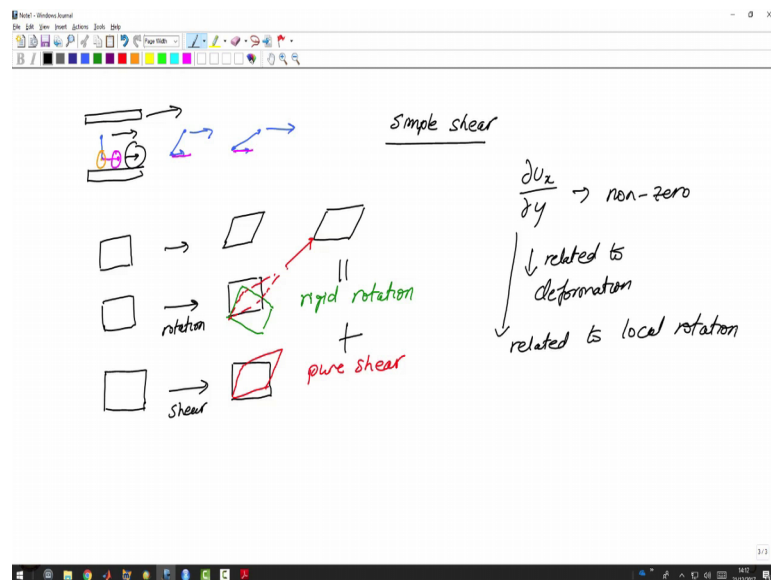 Note1 - Windows Journal
File Edit View Insert Actions Tools Help
Page Width
B I
simple shear
∂Ux
∂y → non-zero
↓ related to
deformation
related to local rotation
rotation
rigid rotation
+
pure shear
shear
3/3
14:12